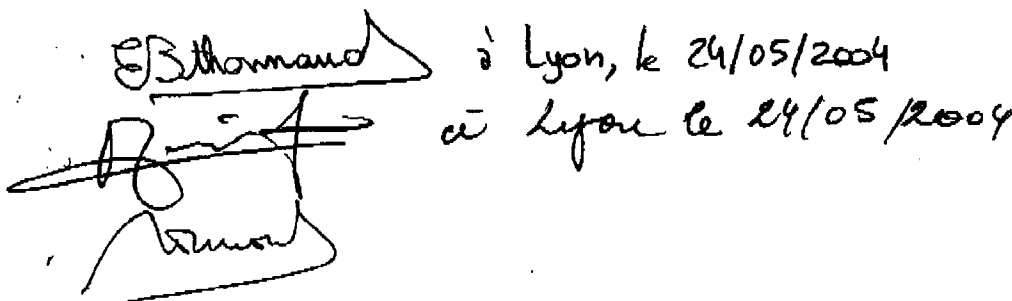 EBthonnaud à Lyon, le 24/05/2004
à Lyon le 24/05/2004